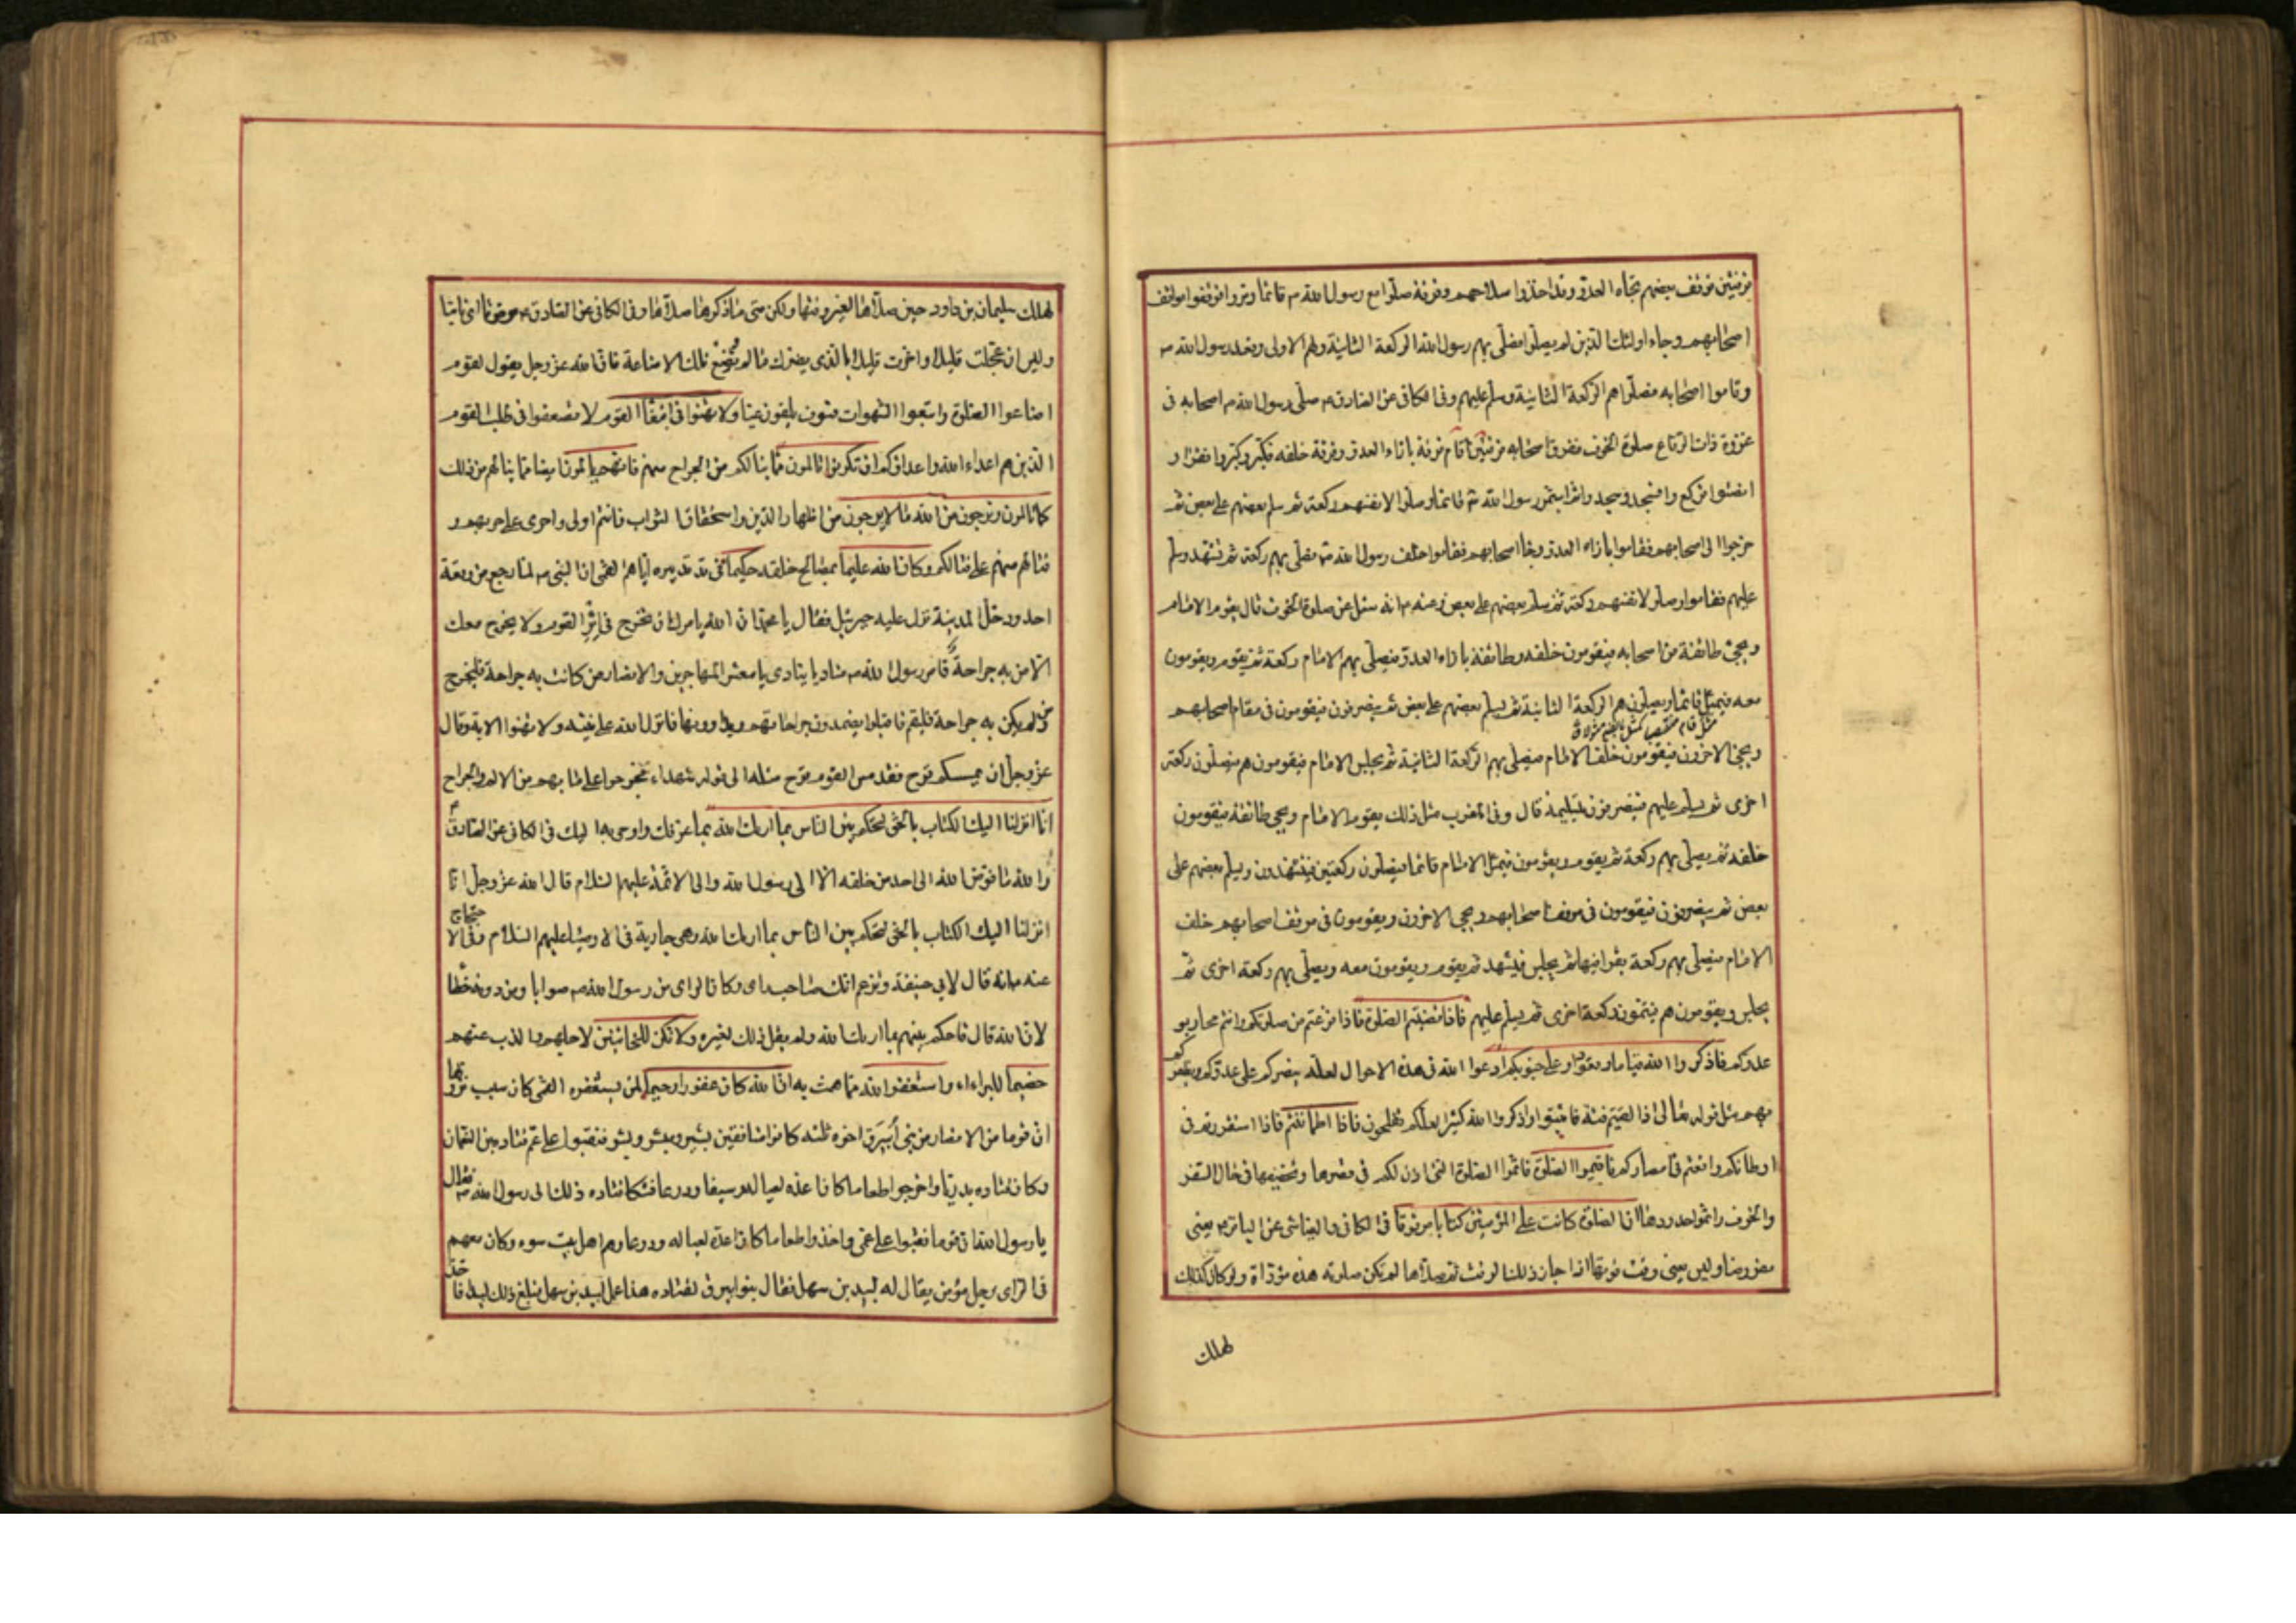 فرقتين فوقف بعضهم تجاه العدو وقد اخذوا سلاحهم وفرقة صلوا مع رسول الله ص قائما ومروا فوقفوا مواقف
اصحابهم وجاء اولئك الذين لم يصلوا فصلى بهم رسول الله الركعة الثانية ولهم الاولى وقعد رسول الله ص
وقاموا اصحابه فصلوا هم الركعة الثانية وسلم عليهم وفى الكافى عن الصادق ع صلى رسول الله ص اصحابه فى
غزوة ذات الرقاع صلوة الخوف ففرق اصحابه فرقتين اقام فرقة بازاء العدو وفرقة خلفه فكبر وكبروا فقرا و
انصتوا فركع وا فسجد وسجدوا ثم استمر رسول الله ص قائما وصلوا لانفسهم ركعة ثم سلم بعضهم على بعض ثم
خرجوا الى اصحابهم فقاموا بازاء العدو وجاء اصحابهم فقاموا خلف رسول الله ص فصلى بهم ركعة ثم تشهد وسلم
عليهم فقاموا وصلوا لانفسهم ركعة ثم سلم بعضهم على بعض وعنه ع انه سئل عن صلوة الخوف قال يقوم الامام
ويجئ طائفة من اصحابه فيقومون خلفه وطائفة بازاء العدو فيصلى بهم الامام ركعة ثم يقوم ويقومون
معه فيمثل قائما ويصلون هم الركعة الثانية ثم يسلم بعضهم على بعض ثم ينصرفون فيقومون فى مقام اصحابهم
ويجئ الاخرون فيقومون خلف الامام فيصلى بهم الركعة الثانية ثم يجلس الامام فيقومون هم فيصلون ركعة
اخرى ثم يسلم عليهم فينصرفون بتسليمة قال وفى المغرب مثل ذلك يقوم الامام ويجئ طائفة فيقومون
خلفه ثم يصلى بهم ركعة ثم يقوم ويقومون فيمثل الامام قائما فيصلون ركعتين فيتشهدون ويسلم بعضهم على
بعض ثم ينصرفون فيقومون فى موقف اصحابهم ويجئ الاخرون ويقومون فى موقف اصحابهم خلف
الامام فيصلى بهم ركعة يقرا فيها ثم يجلس فيتشهد ثم يقوم ويقومون معه ويصلى بهم ركعة اخرى ثم
يجلس ويقومون هم فيتمون ركعة اخرى ثم يسلم عليهم فاذا قضيتم الصلوة فاذا فرغتم من صلوتكم وانتم محاربو
عدوكم فاذكروا الله قياما وقعودا وعلى جنوبكم ادعوا الله فى هذه الاحوال لعله ينصركم على عدوكم ويظفركم
بهم مثل قوله تعالى اذا لقيتم فئة فاثبتوا واذكروا الله كثيرا لعلكم تفلحون فاذا اطماننتم فاذا استقررتم فى
اوطانكم واقمتم فى امصاركم فاقيموا الصلوة فاتموا الصلوة التى اذن لكم فى قصرها وتخفيفها فى حال السفر
والخوف واتموا حدودها ان الصلوة كانت على المؤمنين كتابا موقوتا فى الكافى والعياشى عن الباقر ع يعنى
مفروضا وليس يعنى وقت فوتها اذا جاز ذلك الوقت ثم صلاها لم تكن صلوته هذه مؤداة ولو كان كذلك
لهلك
لهلك سليمان بن داود حين صلاها لغير وقتها ولكن متى ما ذكرها صلاها وفى الكافى عن الصادق ع موقوتا اى ثابتا
وليس ان عجلت قليلا واخرت قليلا بالذى يضرك ما لم تضيع تلك الاضاعة فان الله عز وجل يقول لقوم
اضاعوا الصلوة واتبعوا الشهوات فسوف يلقون غيا ولا تهنوا فى ابتغاء القوم لا تضعفوا فى طلب القوم
الذين هم اعداء الله واعداؤكم ان تكونوا تالمون مما ينالكم من الجراح منهم فانهم يالمون ايضا مما ينالهم من ذلك
كما تالمون وترجون من الله ما لا يرجون من اظهار الدين واستحقاق الثواب فانتم اولى واحرى على حربهم و
قتالهم منهم على قتالكم وكان الله عليما بمصالح خلقه حكيما فى تدبيره اياهم القمى ان النبى ص لما رجع من وقعة
احد ودخل المدينة نزل عليه جبرئيل فقال يا محمد ان الله يامرك ان تخرج فى اثر القوم ولا يخرج معك
الا من به جراحة فامر رسول الله ص مناديا ينادى يا معشر المهاجرين والانصار من كانت به جراحة فليخرج
ومن لم يكن به جراحة فليقم فاقبلوا يضمدون جراحاتهم ويداوونها فانزل الله على نبيه ولا تهنوا الاية وقال
عز وجل ان يمسسكم قرح فقد مس القوم قرح مثله الى قوله شهداء فخرجوا على ما بهم من الالم والجراح
انا انزلنا اليك الكتاب بالحق لتحكم بين الناس بما اريك الله بما عرفك واوحى به اليك فى الكافى عن الصادق ع
والله ما فوض الله الى احد من خلقه الا الى رسول الله والى الائمة عليهم السلام قال الله عز وجل انا
انزلنا اليك الكتاب بالحق لتحكم بين الناس بما اريك الله وهى جارية فى الاوصياء عليهم السلام وفى الاحتجاج
عنه ع انه قال لابى حنيفة وتزعم انك صاحب راى وكان الراى من رسول الله ص صوابا ومن دونه خطا
لان الله قال فاحكم بينهم بما اريك الله ولم يقل ذلك لغيره ولا تكن للخائنين لاجلهم والذب عنهم
خصيما للبراءاء واستغفر الله مما هممت به ان الله كان غفورا رحيما لمن يستغفره القمى كان سبب نزولها
ان قوما من الانصار من بنى ابيرق اخوة ثلثة كانوا منافقين بشير وبشر ومبشر فنقبوا على عم قتادة بن النعمان
وكان قتادة بدريا واخرجوا طعاما كان اعده لعياله وسيفا ودرعا فشكا قتادة ذلك الى رسول الله ص فقال
يا رسول الله ان قوما نقبوا على عمى واخذوا طعاما كان اعده لعياله ودرعا وهم اهل بيت سوء وكان معهم
فى الراى رجل مؤمن يقال له لبيد بن سهل فقال بنو ابيرق لقتادة هذا عمل لبيد بن سهل فبلغ ذلك لبيدا فاخذ